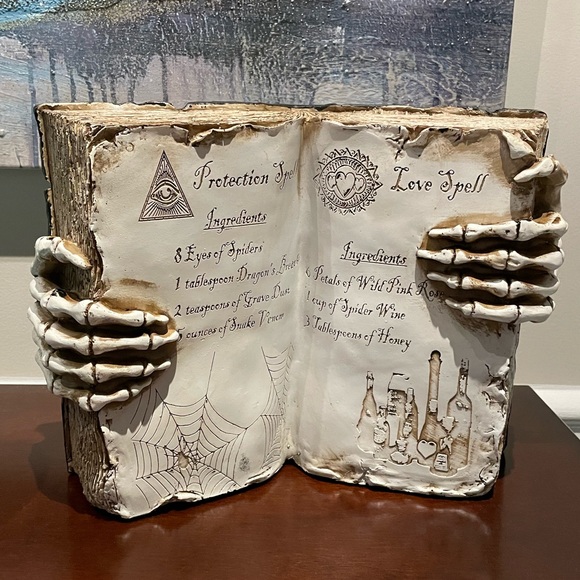 Protection Spell
Ingredients
8 Eyes of Spiders
1 tablespoon Dragon's Breath
2 teaspoons of Grave Dust
ounces of Snake Venom
Love Spell
Ingredients
Petals of Wild Pink Rose
1 cup of Spider Wine
3 Tablespoons of Honey